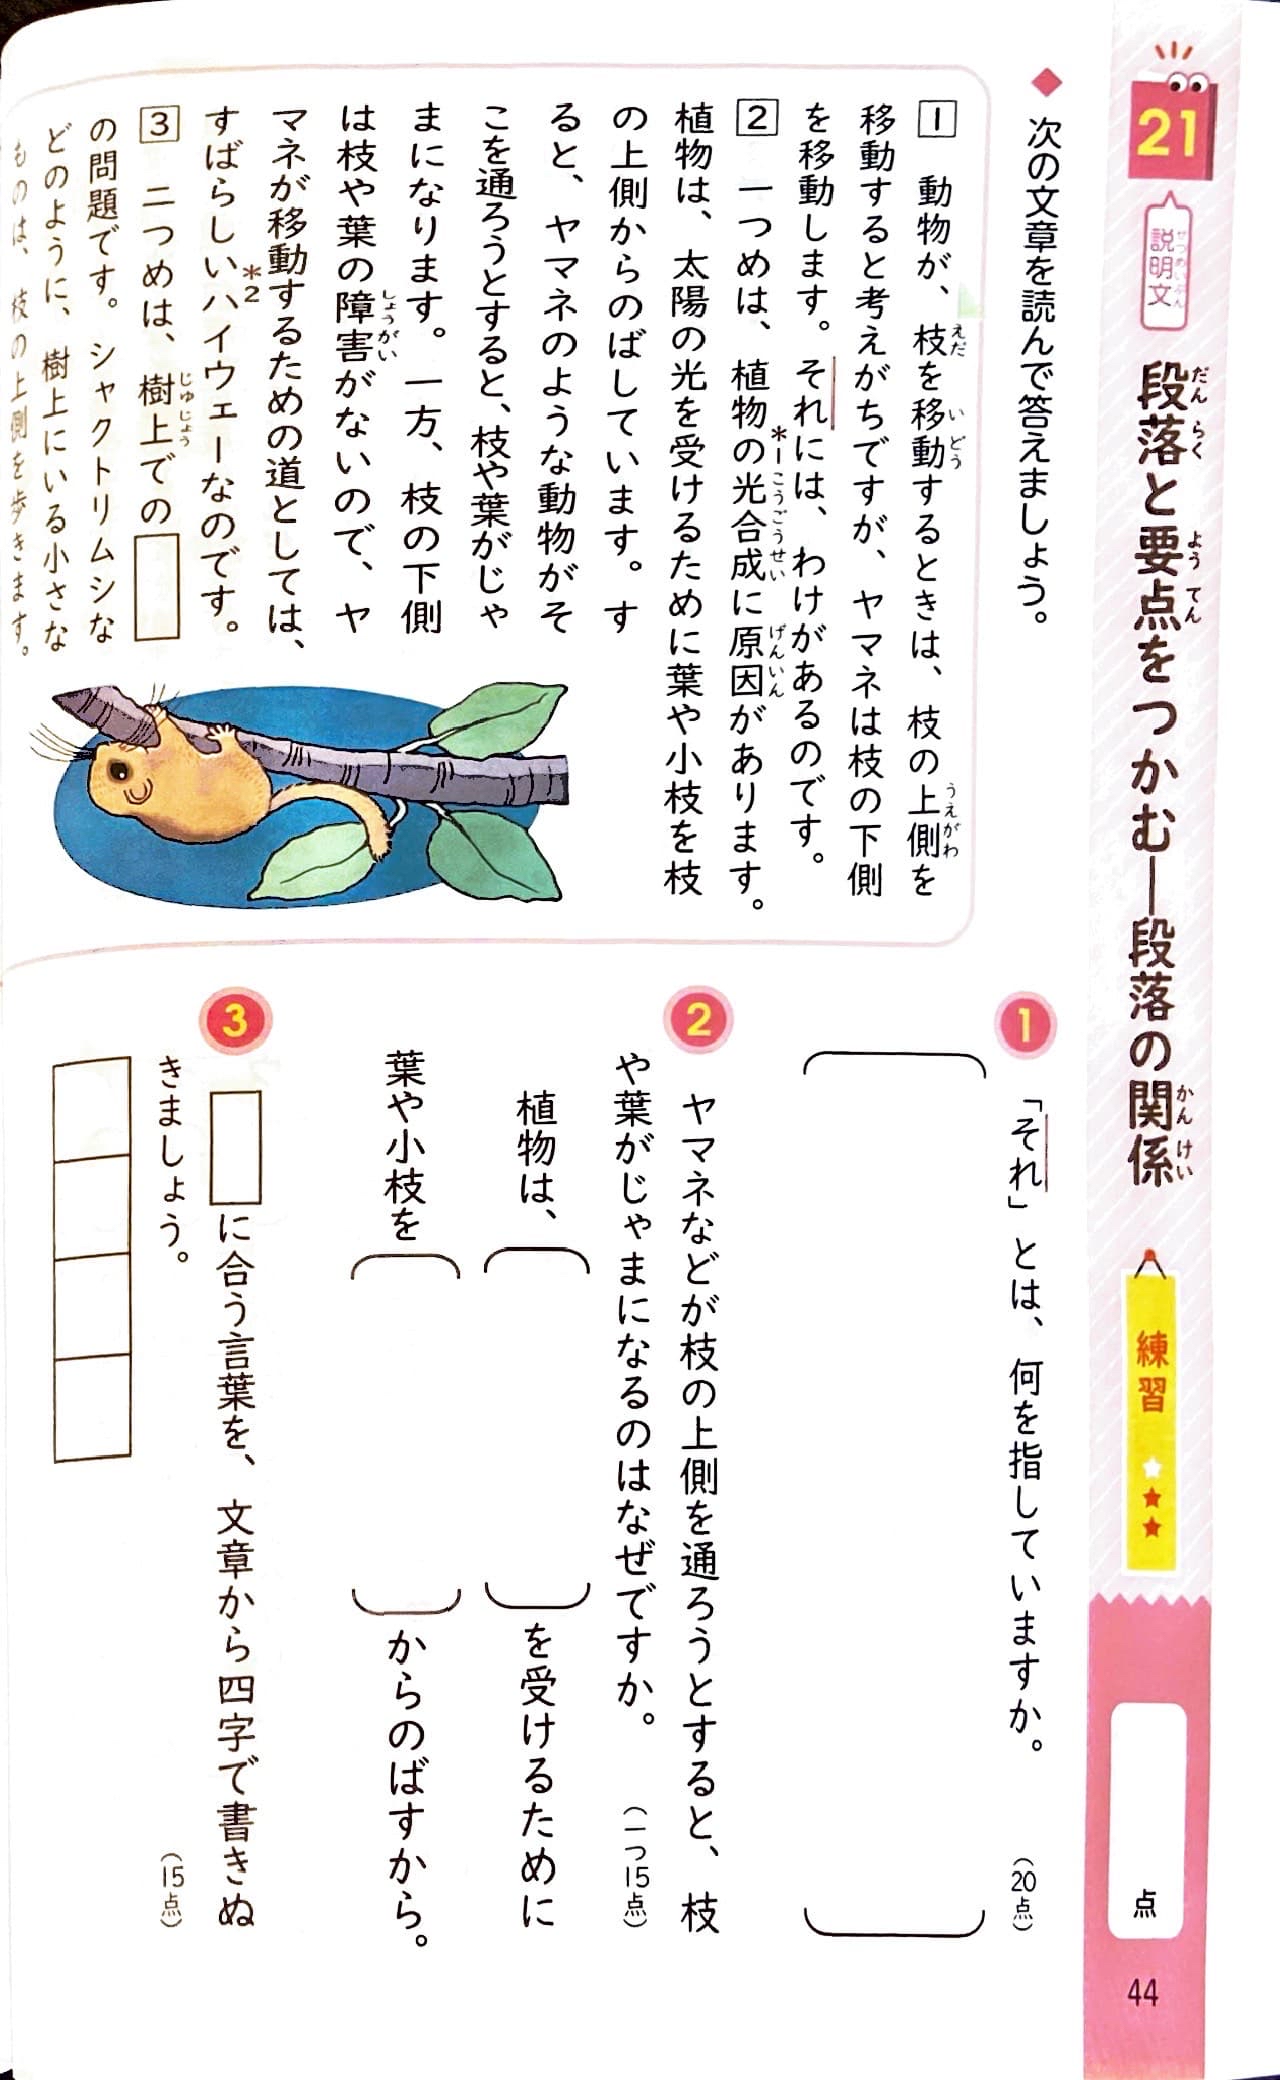 21
説明文
せつめいぶん
段落と要点をつかむ―段落の関係
だんらく
ようてん
かんけい
練習
点
44
◆次の文章を読んで答えましょう。
1 動物が、枝を移動するときは、枝の上側を
えだ
いどう
うえがわ
移動すると考えがちですが、ヤマネは枝の下側
を移動します。それには、わけがあるのです。
2 一つめは、植物の光合成に原因があります。
*1
こうごうせい
げんいん
植物は、太陽の光を受けるために葉や小枝を枝
の上側からのばしています。す
ると、ヤマネのような動物がそ
こを通ろうとすると、枝や葉がじゃ
まになります。一方、枝の下側
は枝や葉の障害がないので、ヤ
しょうがい
マネが移動するための道としては、
すばらしいハイウェーなのです。
*2
3 二つめは、樹上での
じゅじょう
の問題です。シャクトリムシな
どのように、樹上にいる小さな
ものは、枝の上側を歩きます。
1
「それ」とは、何を指していますか。
(20点)
2
ヤマネなどが枝の上側を通ろうとすると、枝
や葉がじゃまになるのはなぜですか。
(一つ15点)
植物は、( )を受けるために
葉や小枝を( )からのばすから。
3
に合う言葉を、文章から四字で書きぬ
きましょう。
(15点)